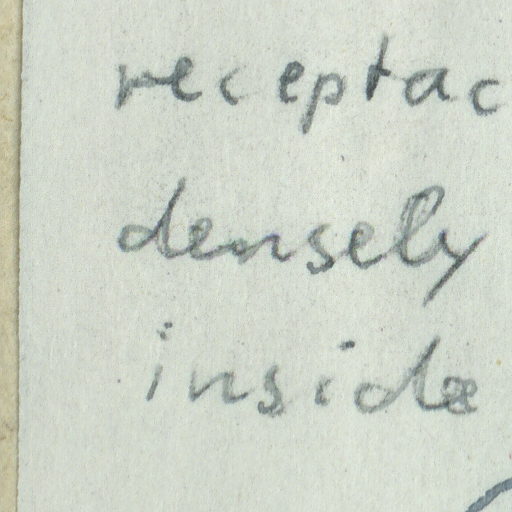 receptac
densely
inside